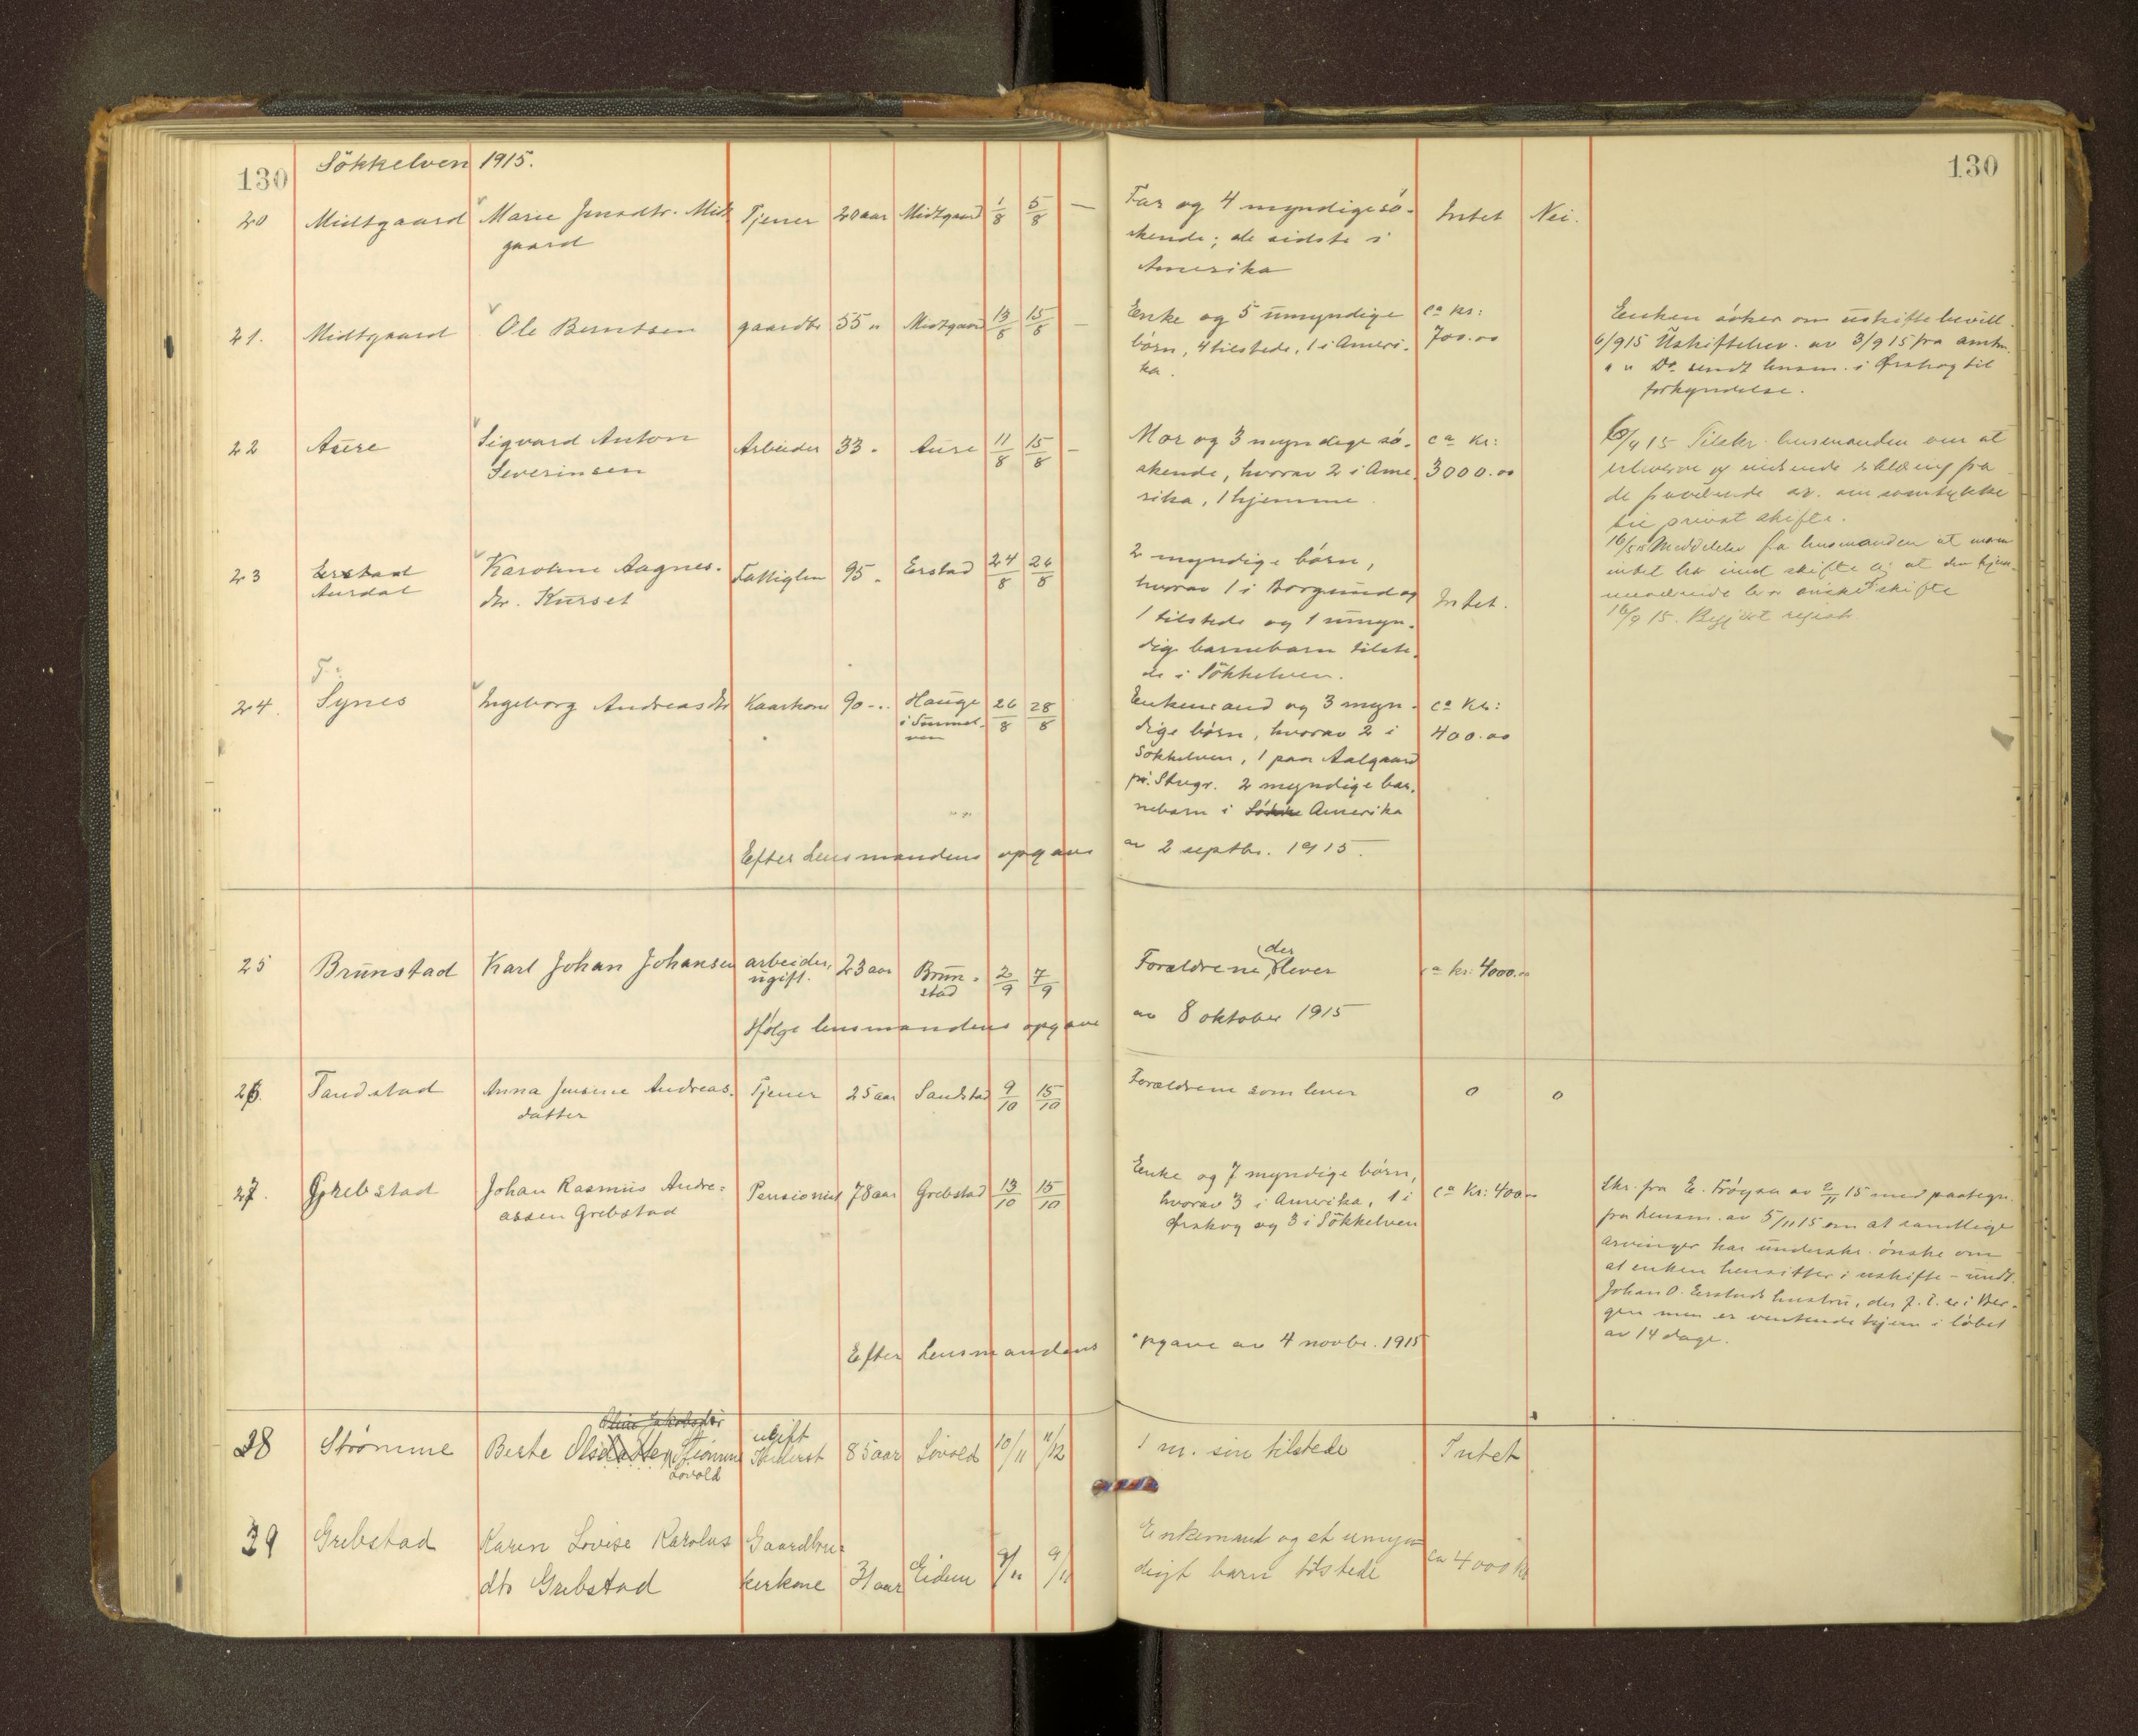 130 Sökkelven 1915. 130
20 Midtgaard Marie Jensdtr. Midt Tjener 20 aar Midtgaard 1/8 5/8 — Far og 4 myndige sö- Intet Nei.
gaard skende; de sidste i
Amerika
21. Midtgaard Ole Berntsen gaardbr 55 " Midtgaard 13/8 15/8 — Enke og 5 umyndige ca kr: Enken söker om uskiftebevill.
börn, 4 tilstede, 1 i Ameri- 700.00 6/9 15 Uskiftebev. av 3/9 15 fra amtm.
ka. " " Do. sendt lensm. i Ørskog til
forkyndelse.
22 Aure Sigvard Anton Arbeider 33 " Aure 11/8 15/8 — Mor og 3 myndige sö- ca kr: 15 Tilskr. lensmanden om at
Severinsen skende, hvorav 2 i Ame- 3000.00 erhverve og indsende erklæring fra
rika, 1 hjemme de om samtykke
til privat skifte.
23 Erstad Karoline Aagnes- Fattiglem 95 " Erstad 24/8 26/8 2 myndige börn, Meddelelse fra lensmanden at
Aursdal dtr. Kurset hvorav 1 i Borgund og Intet. intet skifte at den
1 tilstede og 1 umyn- önsker skifte
dig barnebarn tilste- 15.
de i Sökkelven.
24. Synes Ingeborg Andreasdtr Kaarkone 90 - " Hauge 26/8 28/8 Enkemand og 3 myn- ca kr:
i Sunnel- dige börn, hvorav 2 i 400.00
ven Sökkelven, 1 paa Aalgaard
pr. Stvgr. 2 myndige bar-
nebarn i Sökke Amerika
Efter Lensmandens opgave av 2 septbr. 1915.
25 Brunstad Karl Johan Johansen arbeider, 23 aar Brun- 2/9 7/9 Forældrene der lever ca kr: 4000.00
ugift. stad
Ifölge lensmandens opgave av 8 oktober 1915
26. Tandstad Anna Jensine Andreas- Tjener 25 aar Sandstad 9/10 15/10 Forældrene som lever 0 0
datter
27. Grebstad Johan Rasmus Andre- Pensionist 78 aar Grebstad 13/10 15/10 Enke og 7 myndige börn, ca kr: 400.00 Skr. fra E. Fröysa av 2/11 15 med paategn.
assen Grebstad hvorav 3 i Amerika, 1 i fra lensm. av 5/11 15 om at samtlige
Ørskog og 3 i Sökkelven arvinger har underskr. önske om
at enken hensitter i uskifte - undt.
Johan O. Erstads hustru, der f. t. er i Ber-
gen men er ventende hjem i löbet
av 14 dage.
Efter Lensmandens opgave av 4 novbr. 1915
28 Strömme Berte Olsdatter Strömme ugift 85 aar Lövold 10/11 11/12 1 m. sön tilstede Intet
Lövold
29 Grebstad Karen Lovise Karolus Gaardbru- 31 aar Eidem 9/11 Enkemand og et umyn- ca 4000 kr
dtr Grebstad kerkone digt barn tilstede